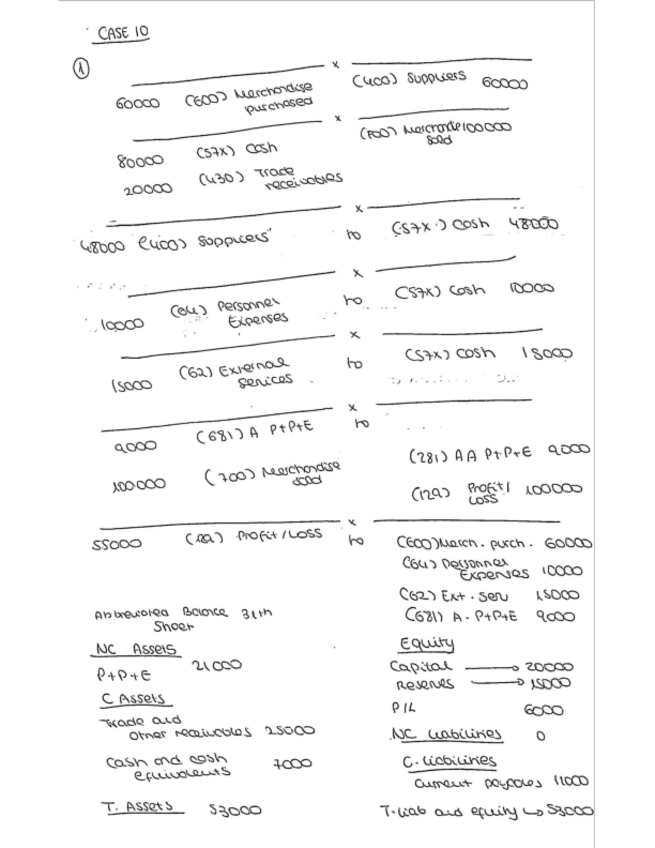 CASE 10
1
x
60000 (600) Merchandise purchased (400) Suppliers 60000
x
80000 (57X) Cash (700) Merchandise sold 100000
20000 (430) Trade receivables
x
48000 (400) Suppliers to (57X.) Cash 48000
x
10,000 (64) Personnel Expenses to (57X) Cash 10000
x
15000 (62) External services to (57X) Cash 15000
x
9,000 (681) A P+P+E to
(281) AA P+P+E 9,000
100 000 (700) Merchandise sold
(129) Profit/Loss 100000
x
55000 (129) Profit/Loss to (600) Merch. purch. 60000
(64) Personnel Expenses 10000
(62) Ext. serv 15000
Abbreviated Balance Sheet 31th (681) A. P+P+E 9000
NC Assets Equity
P+P+E 21000 Capital → 20000
Reserves → 15000
C Assets P/L 6000
Trade and other receivables 25000 NC Liabilities 0
Cash and cash equivalents 7000 C. Liabilities
Current payables 11000
T. Assets 53000 T. Liab and equity ↳ 53000